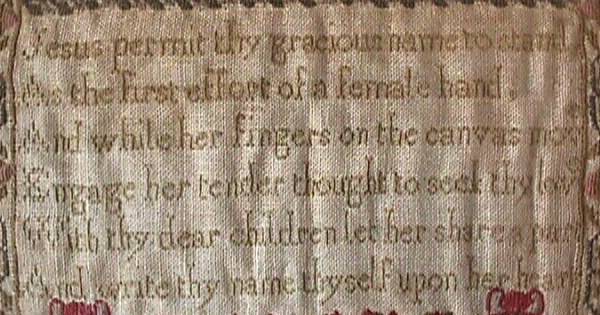 Jesus permit thy gracious name to stand
As the first effort of a female hand,
And while her fingers on the canvas mov
Engage her tender thought to seek thy lov
With thy dear children let her share a part
And write thy name thyself upon her heart